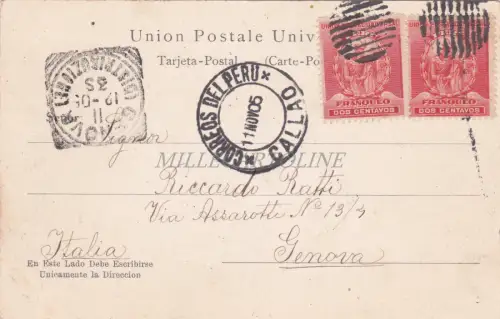 Union Postale Univ
Tarjeta-Postal (Carte-Po
FRANQUEO
DOS CENTAVOS
FRANQUEO
DOS CENTAVOS
CORREOS DEL PERU
11 NOV 05
CALLAO
GENOVA
(DISTRIBUZIONE)
3S
12-05
11
Signor
MILLE CARTOLINE
Riccardo Ratti
Via Assarotti No 13/4
Italia
Genova
En Este Lado Debe Escribirse
Unicamente la Direccion